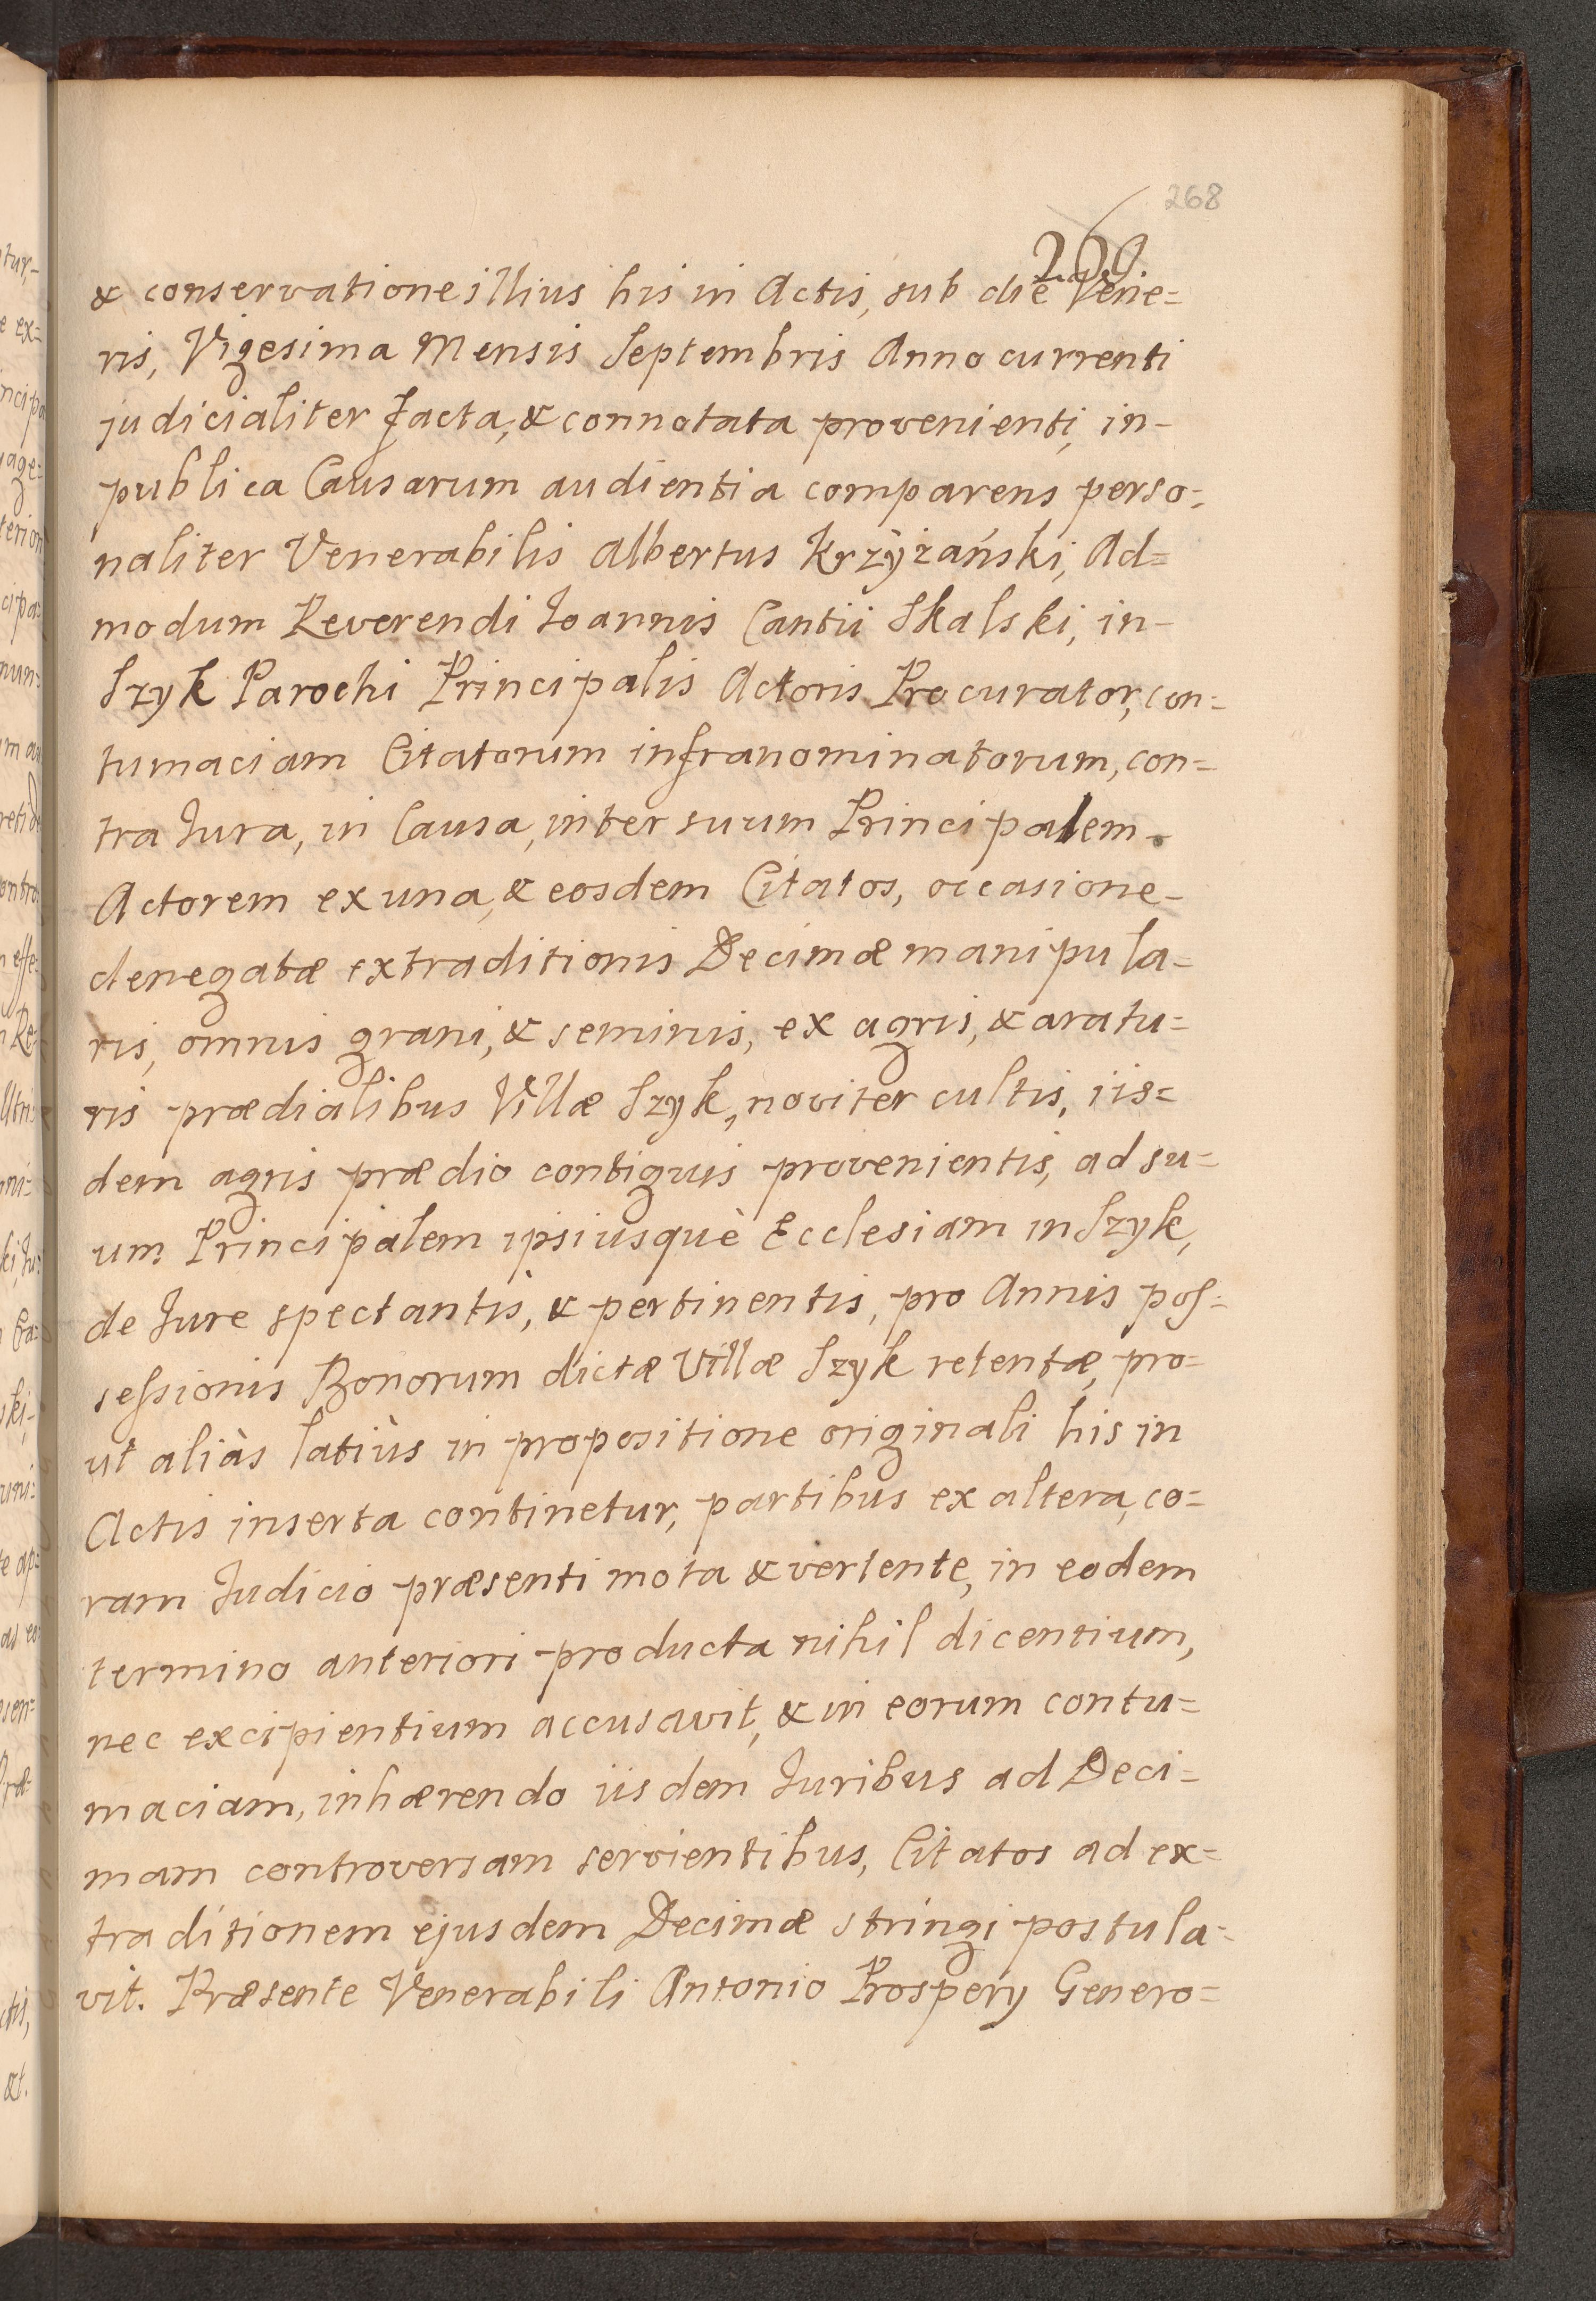 268
& conservatione illius his in Actis, sub die Vene=
ris, Vigesima Mensis Septembris Anno currenti
judicialiter facta, & connotata provenienti, in-
publica Causarum audientia comparens perso=
naliter Venerabilis Albertus Krzyżański, Ad=
modum Reverendi Joannis Cantii Skalski, in-
Szyk Parochi Principalis Actoris Procurator, con=
tumaciam Citatorum infranominatorum, con=
tra Jura, in Causa, inter suum Principalem
Actorem ex una, & eosdem Citatos, occasione-
denegatæ extraditionis Decimæ manipula=
ris, omnis grani, & seminis, ex agris, & aratu=
ris prædialibus Villæ Szyk, noviter cultis, iis=
dem agris prædio contiguis provenientis, ad su=
um Principalem ipsiusquè Ecclesiam in Szyk,
de Jure spectantis, & pertinentis, pro Annis pos=
sessionis Bonorum dictæ Villæ Szyk retentæ, pro=
ut aliàs latiùs in propositione originali his in
Actis inserta continetur, partibus ex altera, co=
ram Judicio præsenti mota & vertente, in eodem
termino anteriori producta nihil dicentium,
nec excipientium accusavit, & in eorum contu=
maciam, inhærendo iisdem Juribus ad Deci=
mam controversam servientibus, Citatos ad ex=
traditionem ejusdem Decimæ stringi postula=
vit. Præsente Venerabili Antonio Prospery Genero=